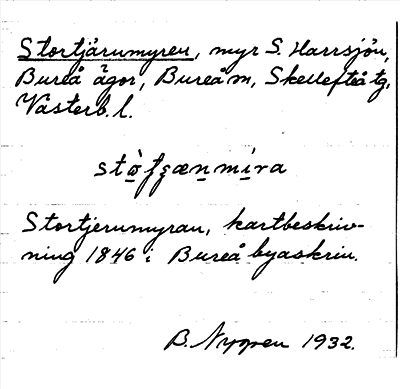 Stortjärumyren, myr S. Harrsjön,
Bureå ägor, Bureå m, Skellefteå tg,
Västerb. l.
Stortjerumyran, kartbeskriv-
ning 1846 i Bureå byaskrin.
B. Nygren 1932.